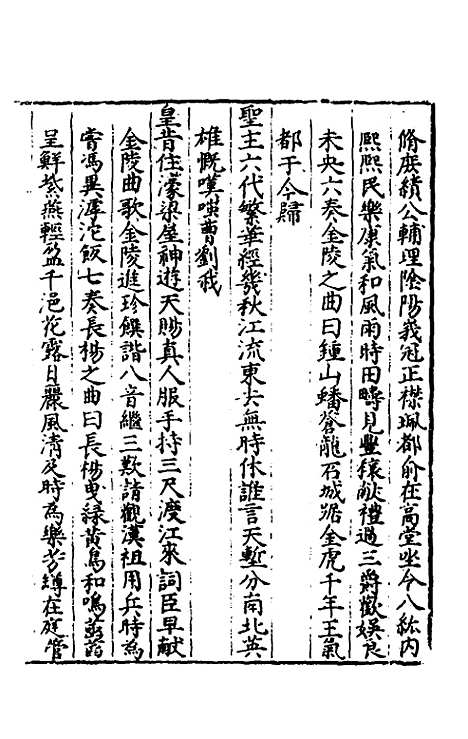 脩庶績公輔理陰陽峩冠正襟珮都俞在高堂坐令八紘内
熙熙民樂康氣和風雨時田疇見豐穰献禮過三爵歡娱良
未央六奏金陵之曲曰鍾山蟠蒼龍石城踞金虎千年王氣
都于今歸
聖主六代繁華經幾秋江流東去無時休誰言天塹分南北英
雄慨嘆嗤曹劉我
皇昔住濠梁屋神遊天賜真人服手持三尺渡江來詞臣早献
金陵曲歌金陵進珍饌諧八音繼三歎請觀漢祖用兵時為
嘗馮異滹沱飯七奏長楊之曲曰長楊曳緑黄鳥和鳴菡萏
呈鮮紫燕輕盈千邑花露日麗風清及時為樂芳罇在庭管